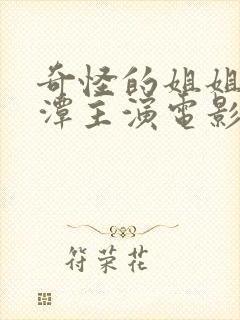 奇怪的姐姐
潭主演电影
符荣花